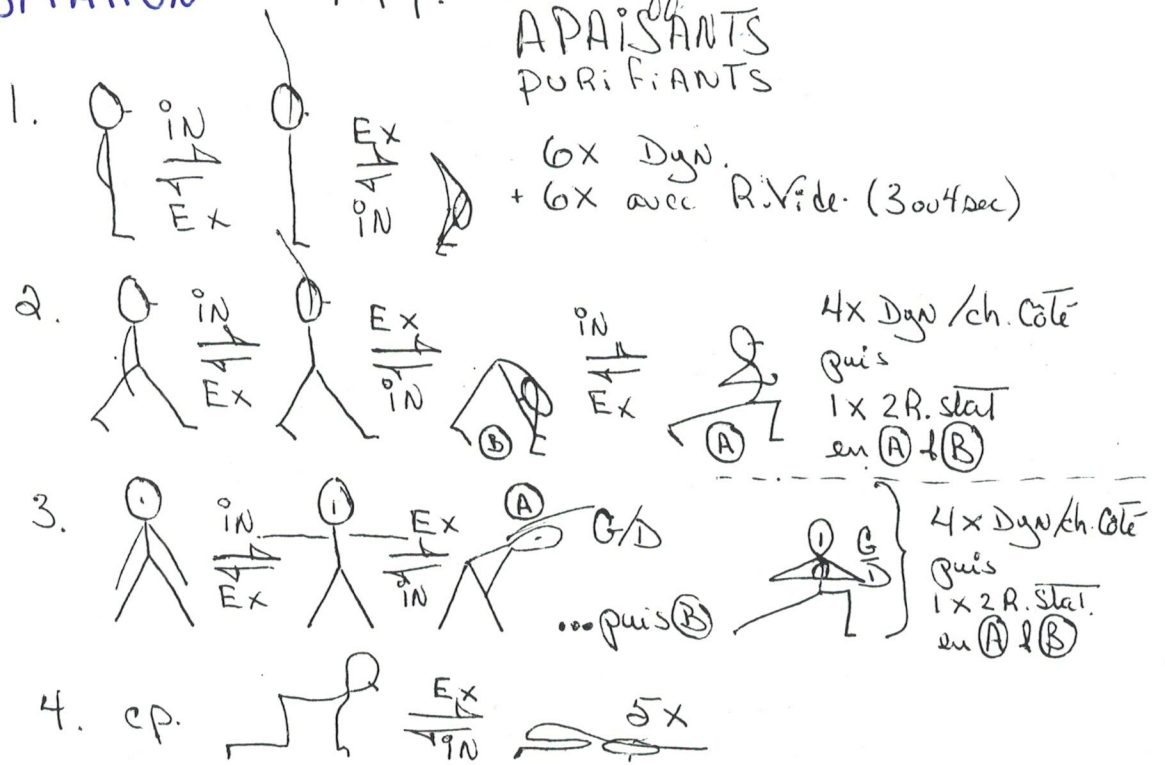 APAiSANTS
PURiFiANTS
1.
iN
Ex
Ex
iN
6x Dyn.
+ 6x avec R.Vide. (3 ou 4 sec)
2.
iN
Ex
Ex
iN
B
iN
Ex
A
4x Dyn /ch. Côté
puis
1x 2R. stat
en A & B
3.
iN
Ex
Ex
iN
A
G/D
...puis B
G
D
4x Dyn/ch. Côté
puis
1x 2R. stat.
en A & B
4. cp.
Ex
iN
5x